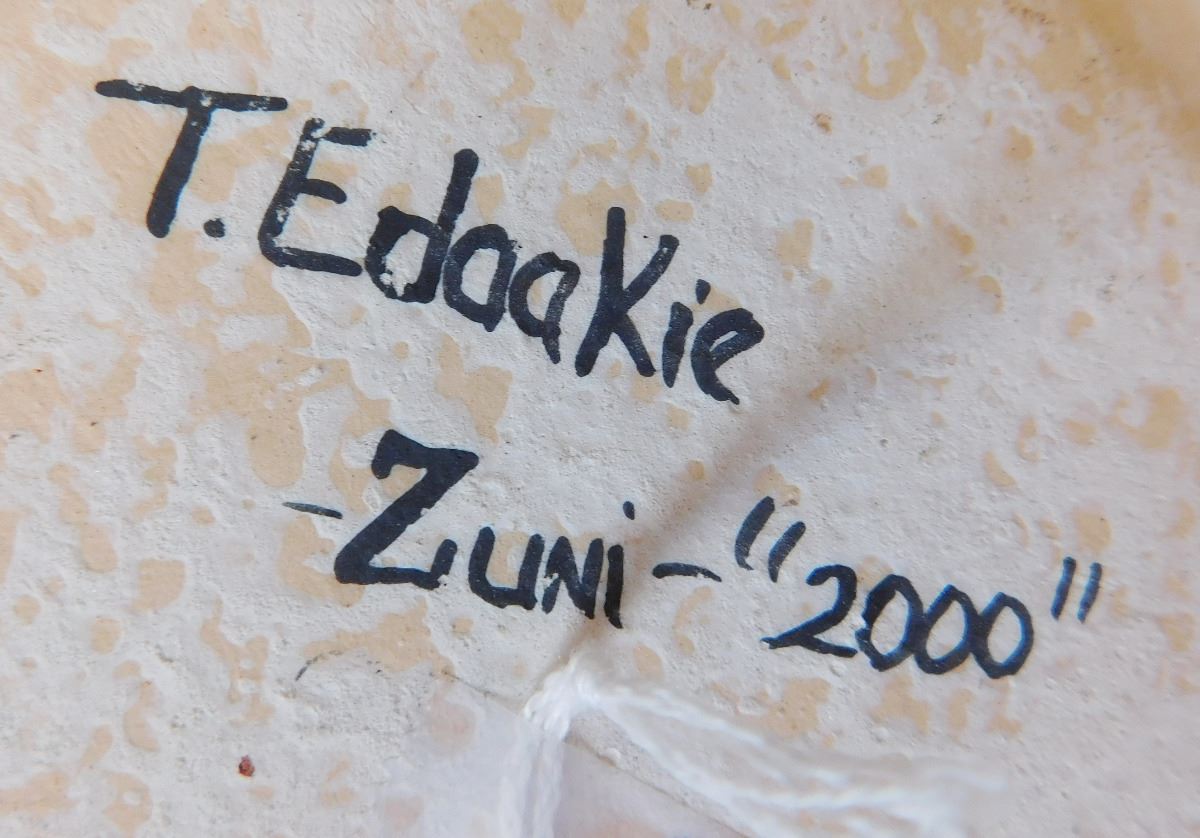 T. Edaakie
-Zuni-"2000"